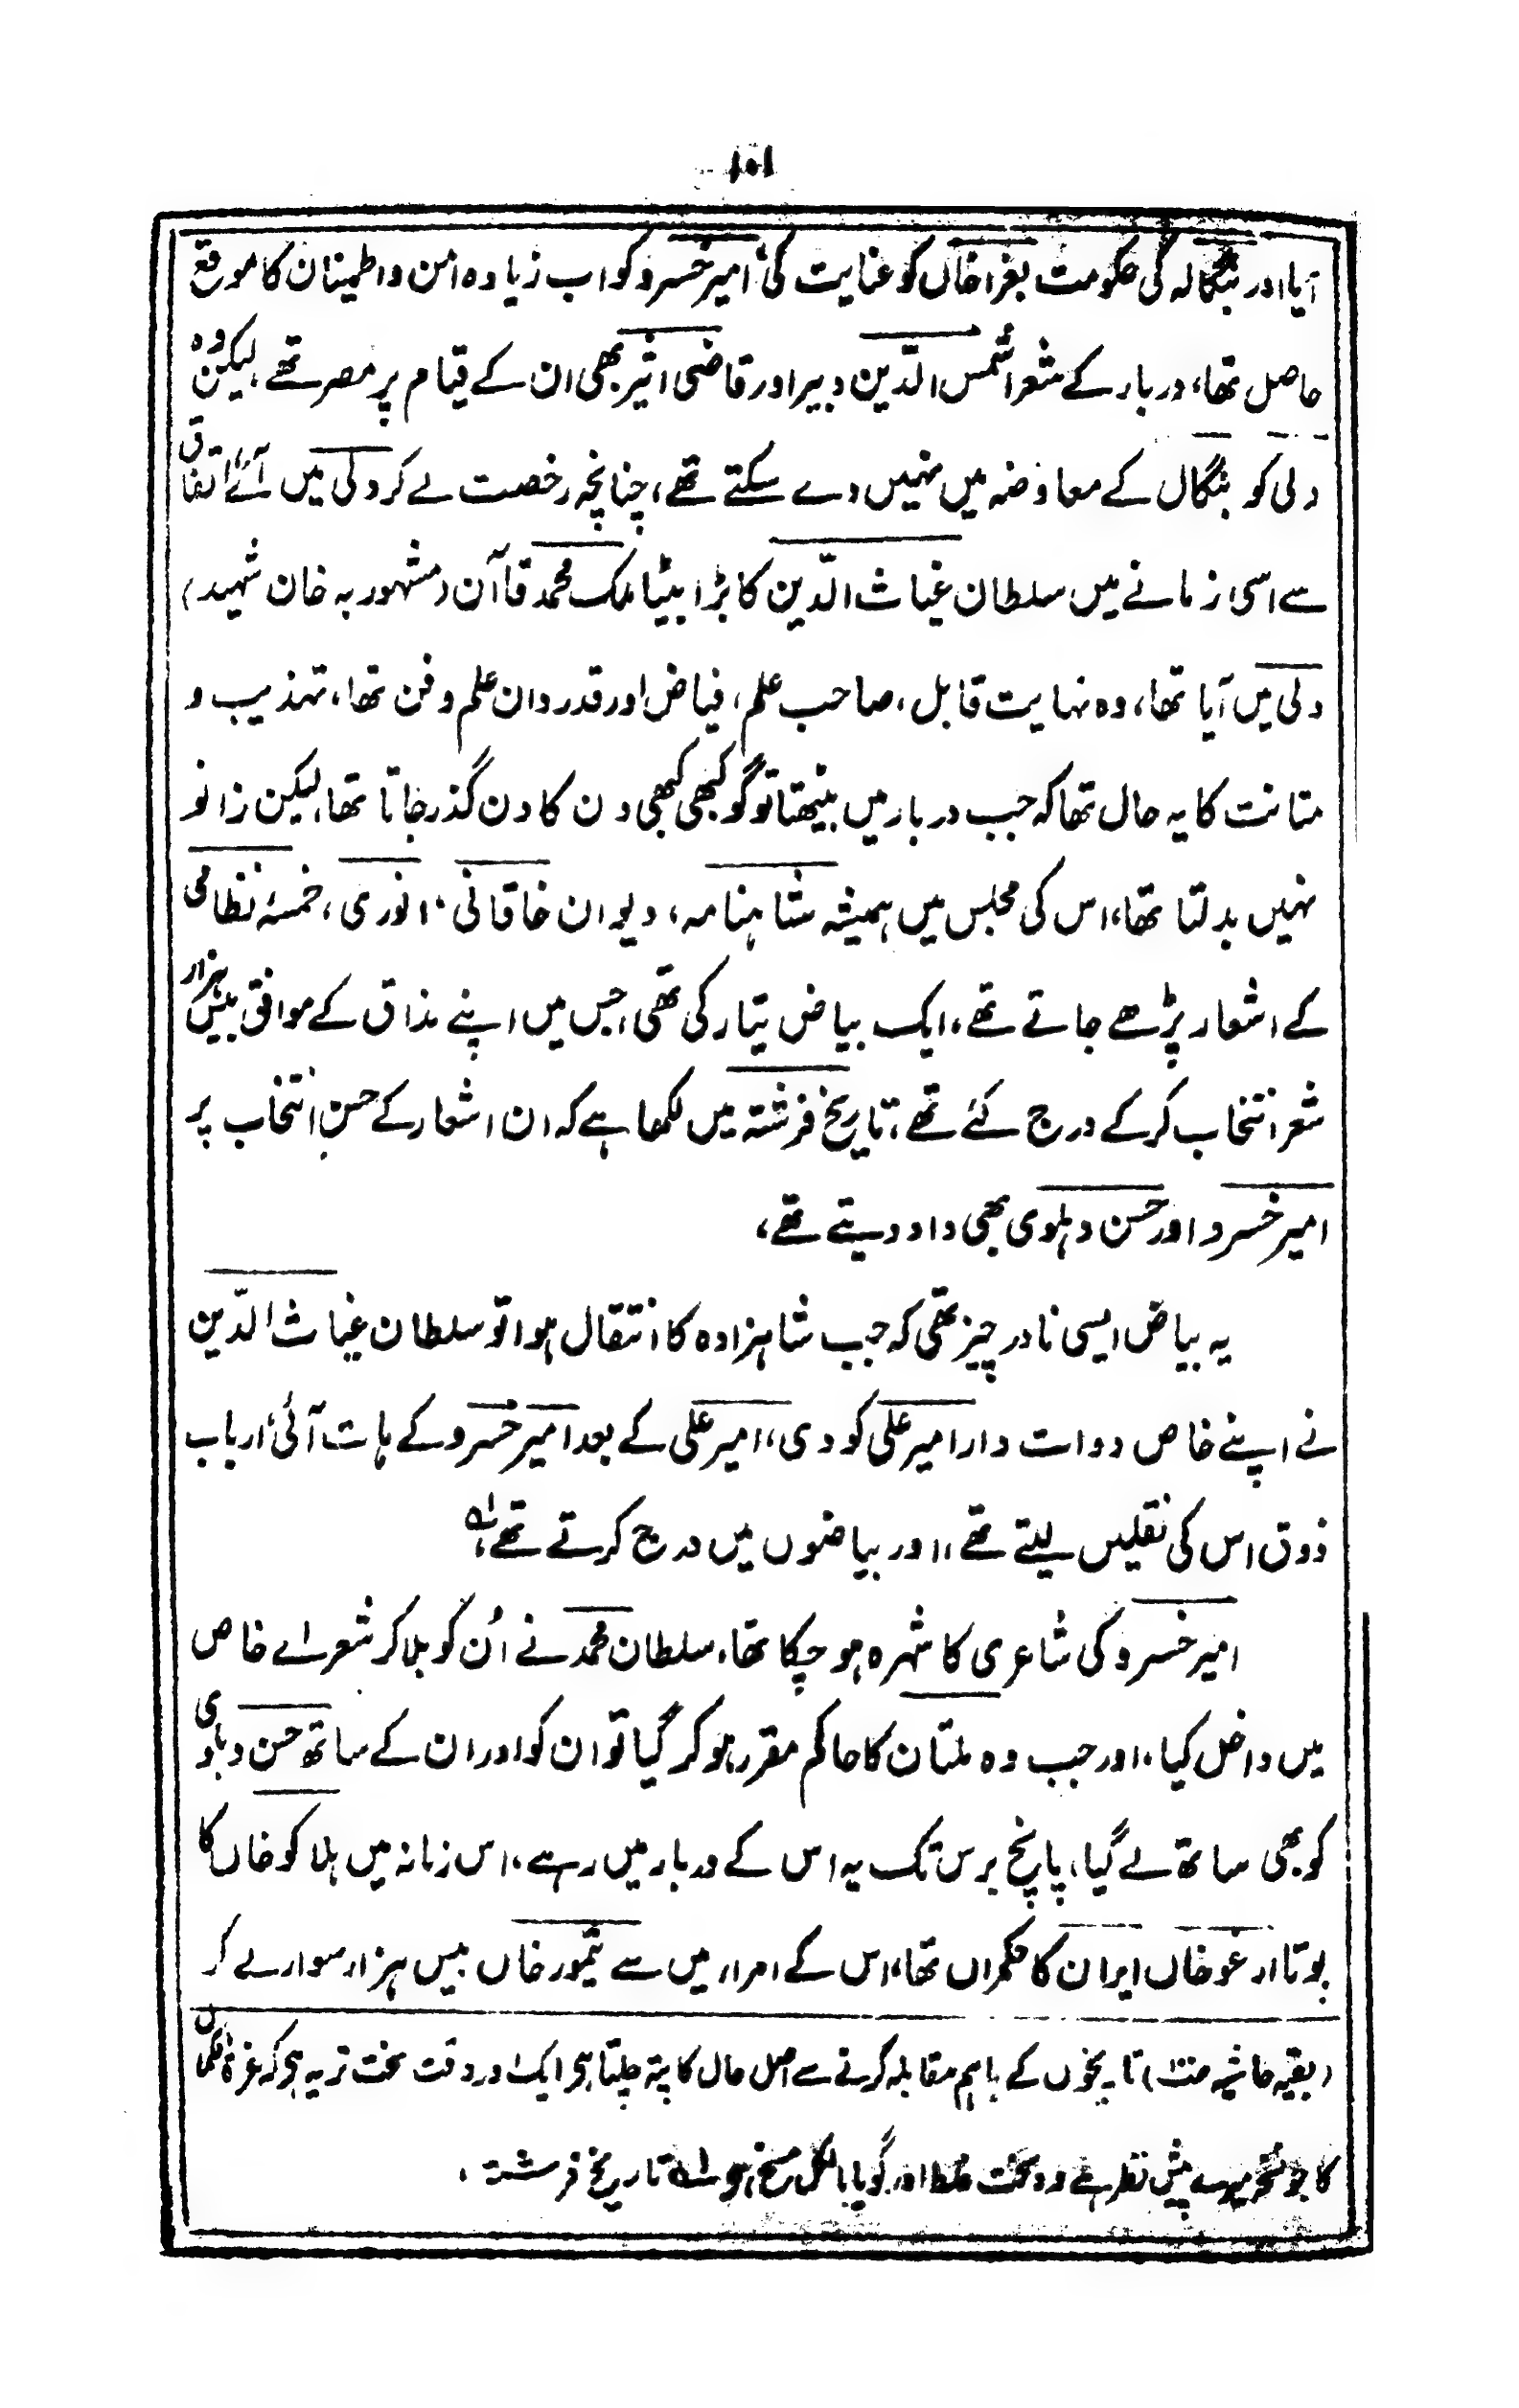 ۱۰۱
آیا اور بنگالہ کی حکومت بغرا خاں کو عنایت کی، امیر خسرو کو اب زیادہ امن و اطمینان کا موقع
حاصل تھا، دربار کے شعرا شمس الدّین دبیر اور قاضی اثیر بھی ان کے قیام پر مصر تھے، لیکن وہ
دلی کو بنگال کے معاوضہ میں نہیں دے سکتے تھے، چنانچہ رخصت لے کر دلی میں آئے، اتفاق
سے اسی زمانے میں سلطان غیاث الدّین کا بڑا بیٹا ملک محمد قاآن (مشہور بہ خان شہید)
دلی میں آیا تھا، وہ نہایت قابل، صاحب علم، فیاض اور قدردان علم و فن تھا، تہذیب و
متانت کا یہ حال تھا کہ جب دربار میں بیٹھتا تو گو کبھی کبھی دن کا دن گذر جاتا تھا، لیکن زانو
نہیں بدلتا تھا، اس کی مجلس میں ہمیشہ شاہنامہ، دیوان خاقانی، انوری، خمسۂ نظامی
کے اشعار پڑھے جاتے تھے، ایک بیاض تیار کی تھی، جس میں اپنے مذاق کے موافق بیس ہزار
شعر انتخاب کرکے درج کئے تھے، تاریخ فرشتہ میں لکھا ہے کہ ان اشعار کے حسنِ انتخاب پر
امیر خسرو اور حسن دہلوی بھی داد دیتے تھے،
یہ بیاض ایسی نادر چیز تھی کہ جب شاہزادہ کا انتقال ہوا تو سلطان غیاث الدّین
نے اپنے خاص دوات دار امیر علی کو دی، امیر علی کے بعد امیر خسرو کے ہات آئی، ارباب
ذوق اس کی نقلیں لیتے تھے، اور بیاضوں میں درج کرتے تھے، لہ
امیر خسرو کی شاعری کا شہرہ ہو چکا تھا، سلطان محمد نے اُن کو بلا کر شعراے خاص
میں داخل کیا، اور جب وہ ملتان کا حاکم مقرر ہو کر گیا تو ان کو اور ان کے ساتھ حسن دہلوی
کو بھی ساتھ لے گیا، پانچ برس تک یہ اس کے دربار میں رہے، اس زمانہ میں ہلاکو خاں کا
پوتا ارغو خاں ایران کا حکمراں تھا، اس کے امرا، میں سے تیمور خاں بیس ہزار سوار لے کر
(بقیہ حاشیہ صنتلہ) تاریخوں کے باہم مقابلہ کرنے سے اصل حال کا پتہ چلتا ہی، ایک اور دقت سخت تر یہ ہی کہ غرۃ الکمال
کا جو نسخہ میرے پیش نظر ہے وہ سخت غلط اور گویا بالکل مسخ ہی لہ تاریخ فرشتہ،